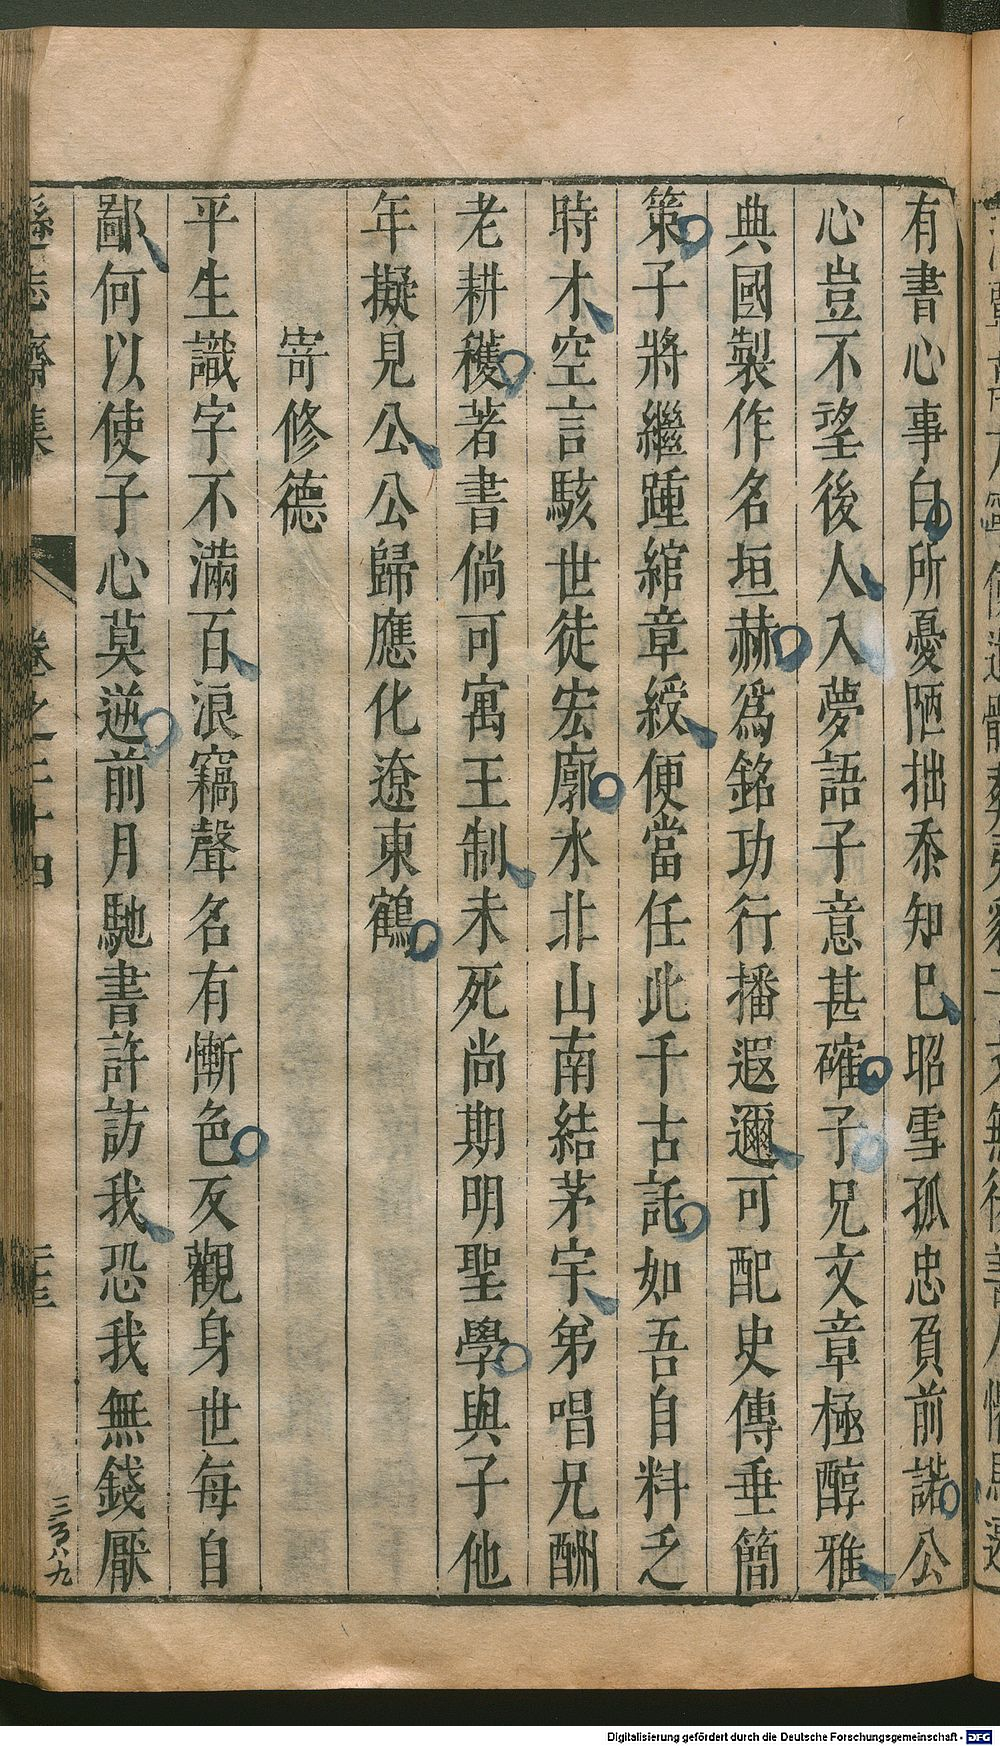 有書心事白所憂陋拙忝知巳昭雪孤忠負前諾公
心豈不望後人入夢語子意甚確子兄文章極醇雅
典國製作名垣赫爲銘功行播遐邇可配史傳垂簡
策子將繼踵綰章綬便當任此千古託如吾自料乏
時才空言駭世徒宏廓水北山南結茅宇弟唱兄酬
老耕穫著書倘可寓王制未死尚期明聖學與子他
年擬見公公歸應化遼東鶴
寄修德
平生識字不滿百浪竊聲名有慚色反觀身世每自
鄙何以使子心莫逆前月馳書許訪我恐我無錢厭
遜志齋集
卷之二十四
三百八九
Digitalisierung gefördert durch die Deutsche Forschungsgemeinschaft - DFG